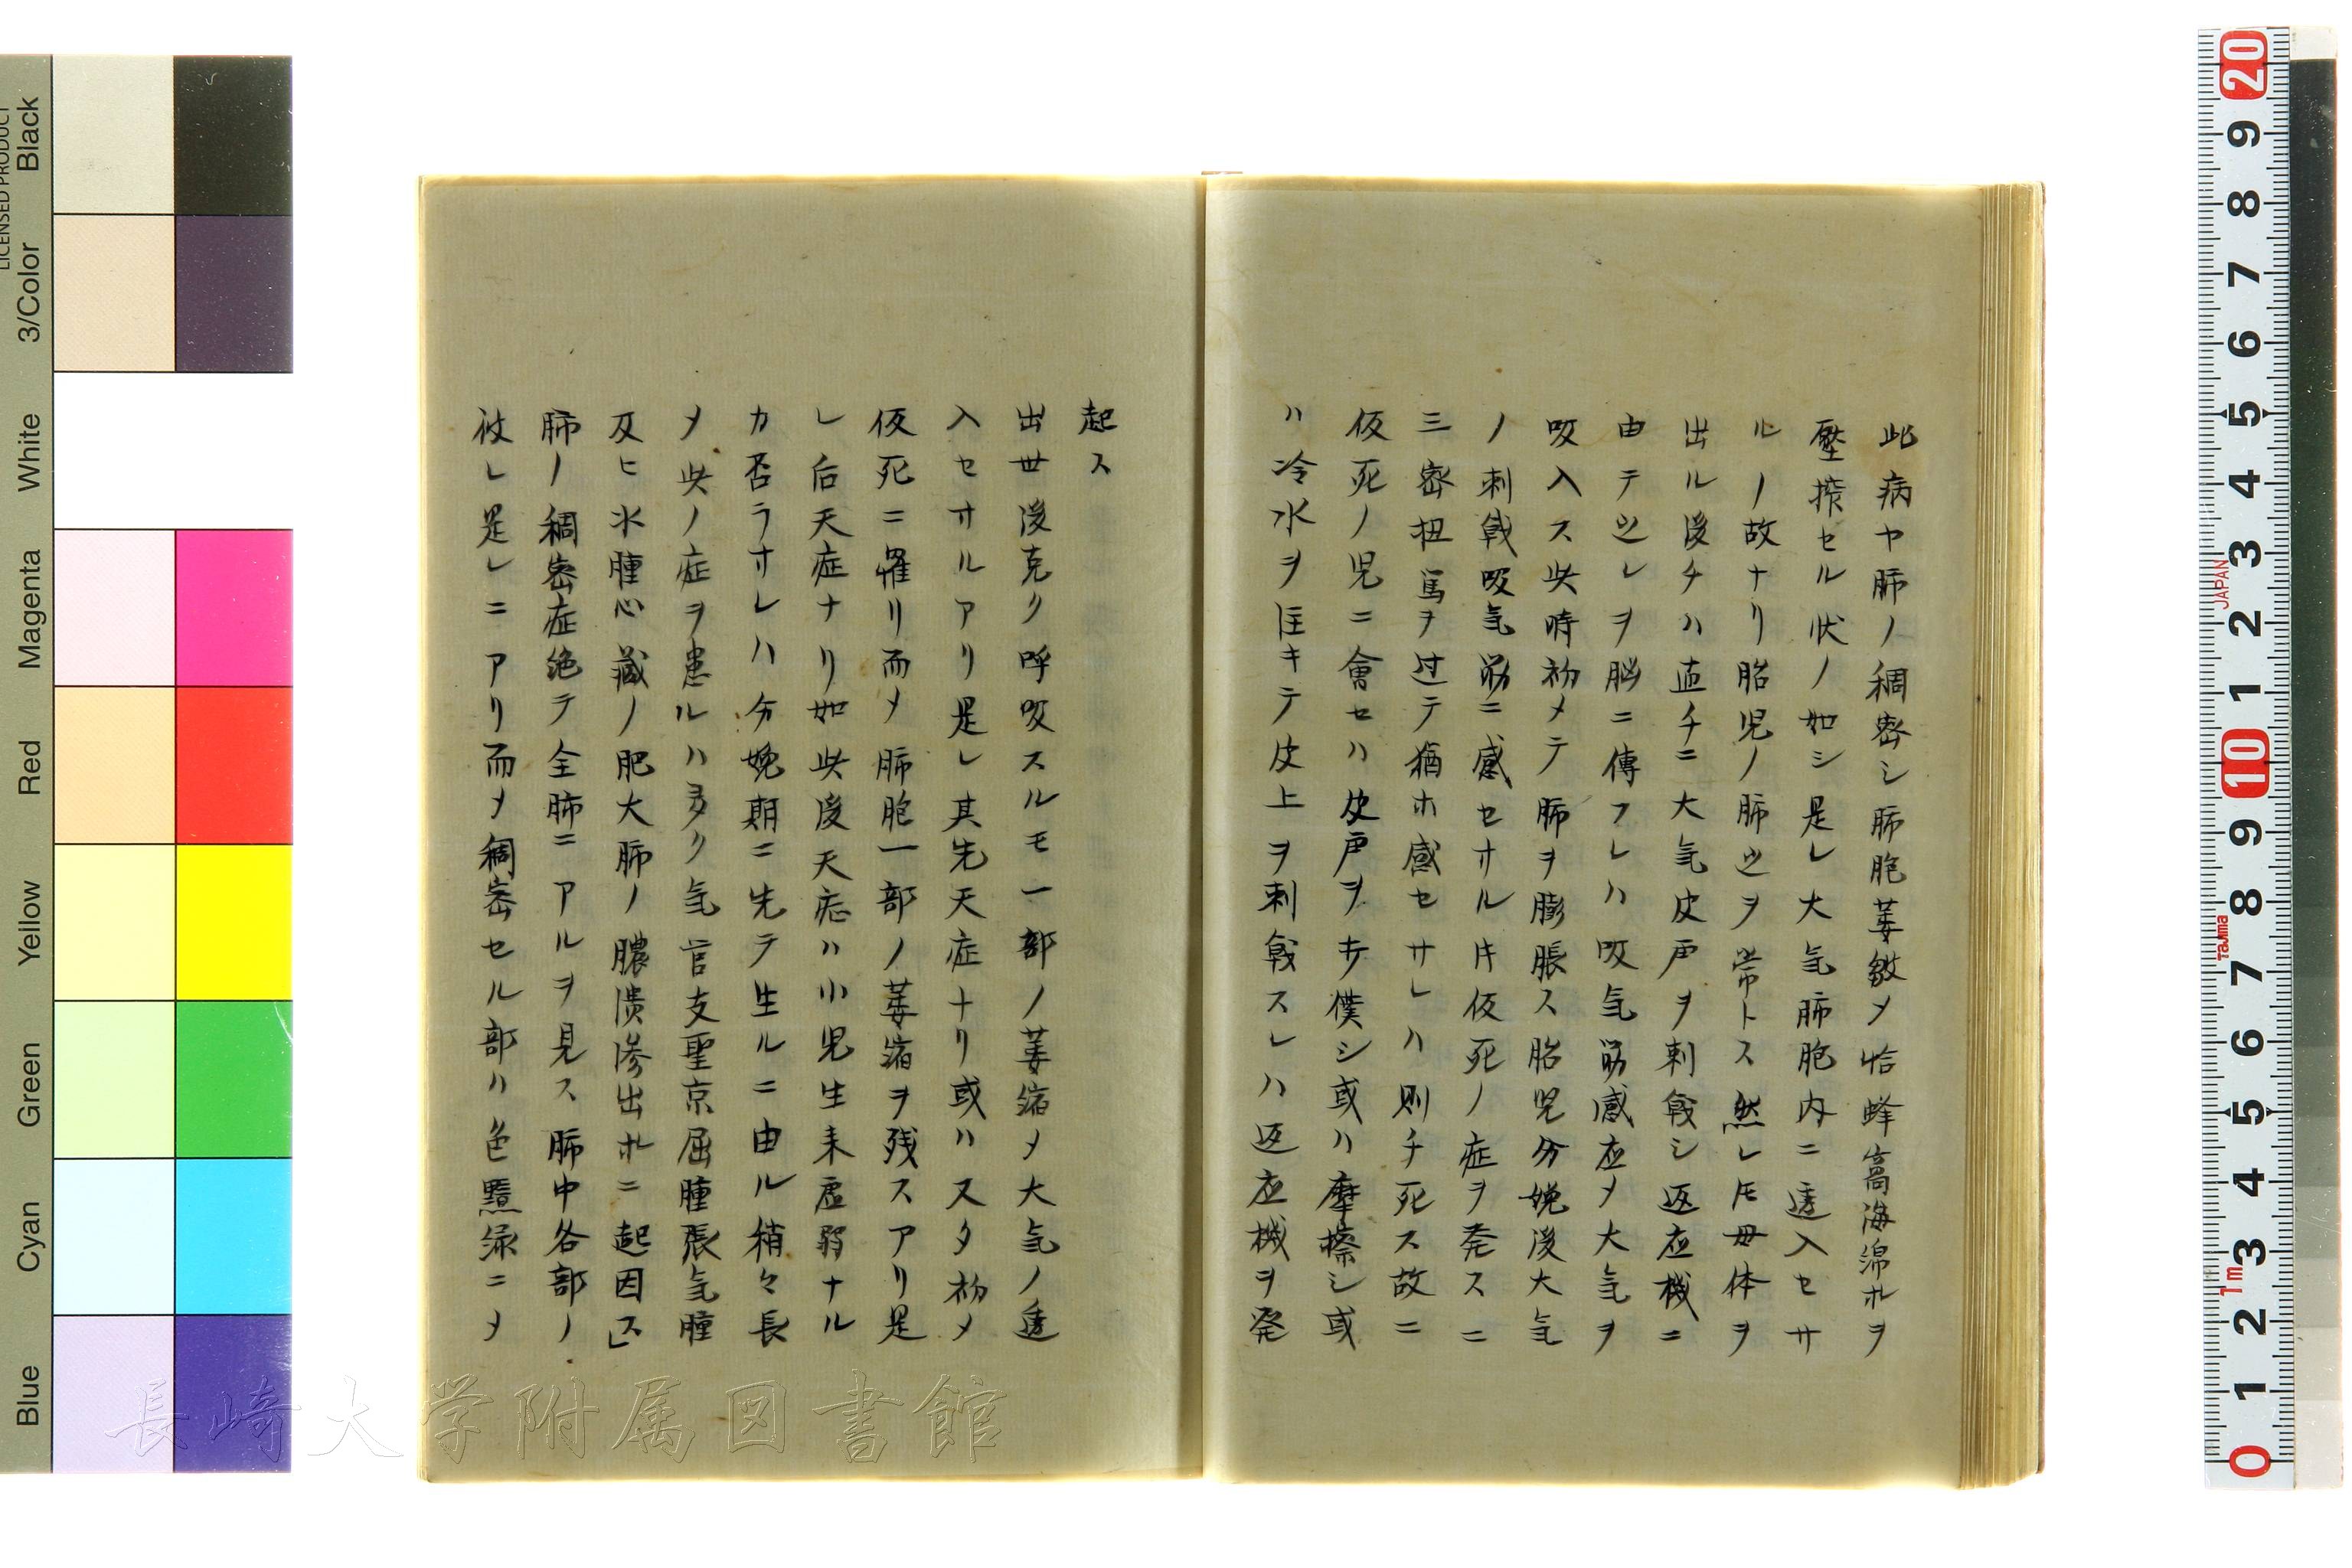 此病ヤ肺ノ稠密シ肺胞萎皺メ恰蜂窩海綿ホヲ
壓搾セル状ノ如シ是レ大気肺胞内ニ透入セサ
ルノ故ナリ胎児ノ肺之ヲ常トス然レ𪜈母体ヲ
出ル後チハ直チニ大気皮戸ヲ刺戟シ返应機ニ
由テ之レヲ脳ニ傳フレハ吸気筋感应メ大気ヲ
吸入ス此時初メテ肺ヲ膨脹ス胎児分娩後大気
ノ刺戟吸気筋ニ感セサル片仮死ノ症ヲ発スニ
三密扭篤ヲ过テ猶ホ感セサレハ則チ死ス故ニ
仮死ノ児ニ會セハ皮戸ヲ
僕シ或ハ摩擦シ或
ハ冷水ヲ注キテ皮上ヲ刺戟スレハ返应機ヲ発
起ス
出世後克ク呼吸スルモ一部ノ萎縮メ大気ノ透
入セサルアリ是レ其先天症ナリ或ハ又タ初メ
仮死ニ罹リ而メ肺胞一部ノ萎縮ヲ残スアリ是
レ后天症ナリ如此後天症ハ小児生来虚弱ナル
カ否ラサレハ分娩期ニ先テ生ルニ由ル稍々長
メ此ノ症ヲ患ルハ多ク気管支聖京屈腫張気腫
及ヒ水腫心藏ノ肥大肺ノ膿潰滲出ホニ起因ス」
肺ノ稠密症絶テ全肺ニアルヲ見ス肺中各部ノ
彼レ是レニアリ而メ稠密セル部ハ色黯緑ニメ
長崎大学附属図書館
LICENSED PRODUCT
Black
3/Color
White
Magenta
Red
Yellow
Green
Cyan
Blue
20
9
8
7
6
5
4
3
JAPAN
2
1
10
9
8
Tajima
7
6
5
4
3
1m
2
1
0